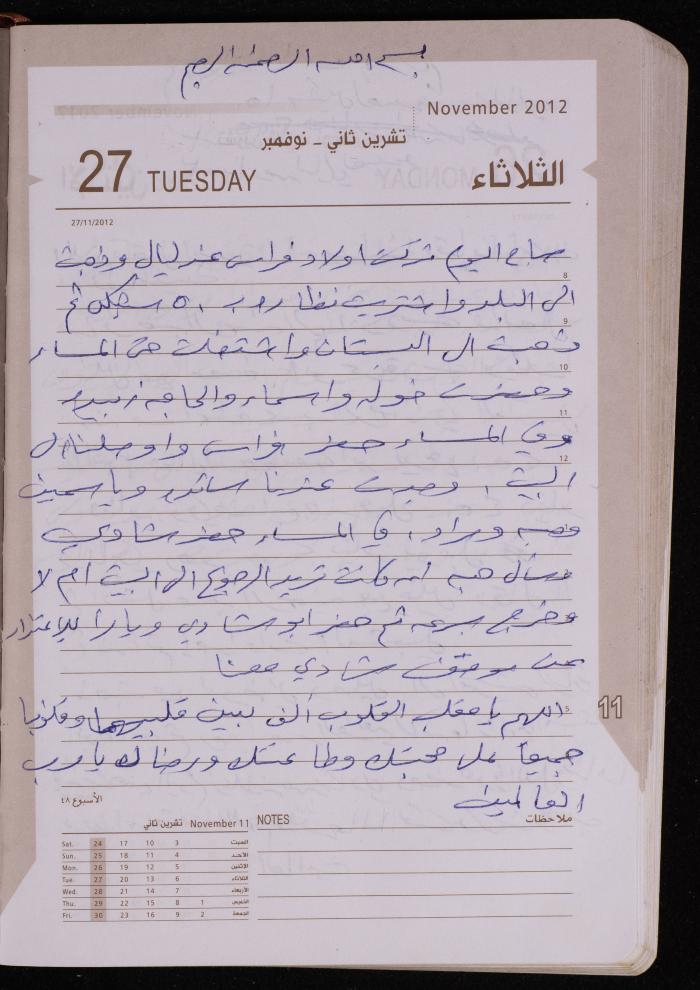 بسم الله الرحمن الرحيم
November 2012
تشرين ثاني - نوفمبر
27 TUESDAY الثلاثاء
27/11/2012
صباح اليوم تركت اولاد فراس عند ليال وذهبت
8
الى البلد واشتريت نظارة ب ٥٠ شيكل ثم
9
ذهبت الى البستان واشتغلت حتى المساء
10
وحضرت خوله واسماء والحاجه زبيده
11
وفي المساء حضر فراس واوصلنا الى
12
البيت، وجدت عندنا ساندرا وياسمين
وهبه ومراد، في المساء حضر شادي
وسأل هبه ان كانت تريد الرجوع الى البيت ام لا
وخرج بسرعه ثم حضر ابو شادي ويارا للإعتذار
عن موقف شادي معنا
5
اللهم يا مقلب القلوب ألف بين قلبيهما وقلوبنا
جميعاً على محبتك وطاعتك ورضاك يا رب
العالمين
11
الأسبوع ٤٨
November 11 تشرين ثاني
Sat. 24 17 10 3 السبت
Sun. 25 18 11 4 الأحد
Mon. 26 19 12 5 الإثنين
Tue. 27 20 13 6 الثلاثاء
Wed. 28 21 14 7 الأربعاء
Thu. 29 22 15 8 1 الخميس
Fri. 30 23 16 9 2 الجمعة
NOTES ملاحظات